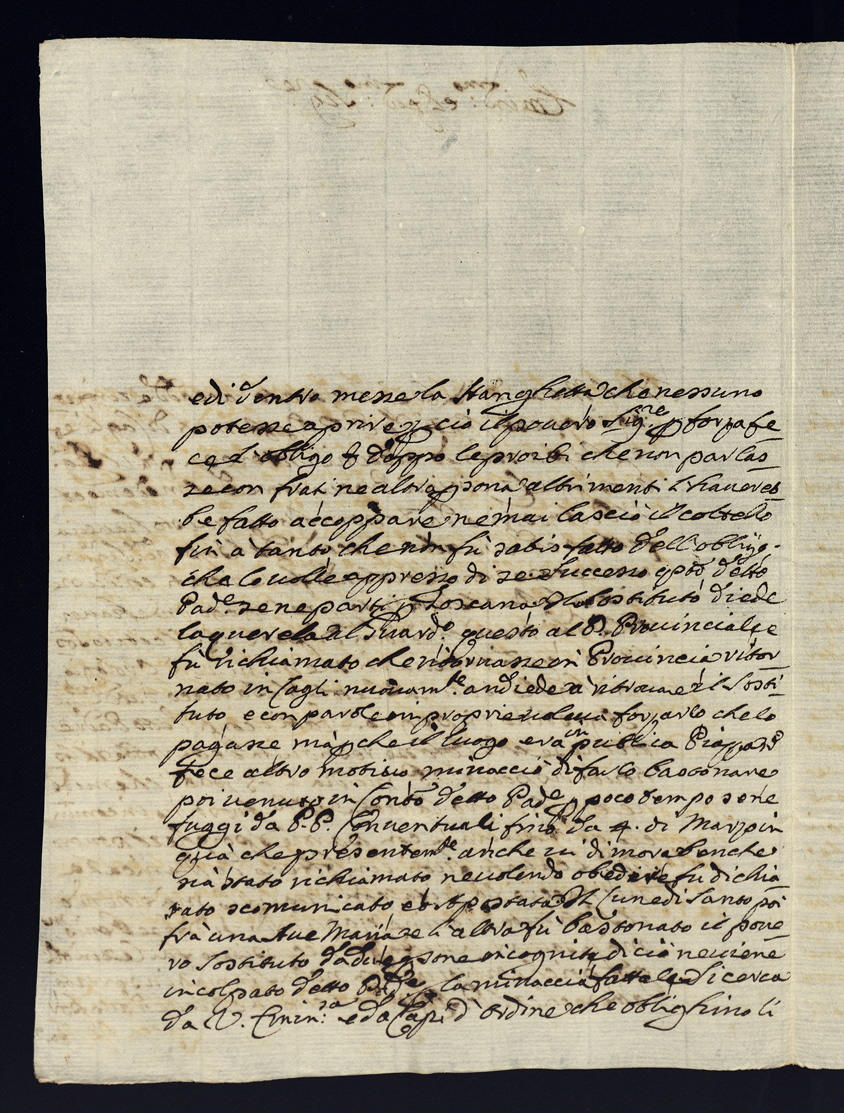 edi dentro messe la stanghetta che nessuno
potesse aprire p ciò il povero Sig.re p forza fe
ce l'obligo e doppo le proibì che non parlas
se con frati ne altre p.sona altrimenti l'haveres
be fatto accoppare ne mai lasciò il coltello
fin à tanto che non fù satisfatto dell'obligo
che le volle appresso di se successo q.to detto
Pad.e se ne partì p Toscana Il Sostituto diede
la querela al Guard.o questo al P. Provinciale e
fù richiamato che ritornasse in Provincia ritor
nato in Cagli nuovam.te andiede à ritrovare il Sosti
tuto e con parole improprie voleva forzarlo che lo
pagasse mà p che il luogo era in publica Piazza
fece altro motivo minacciò di farlo bastonare
poi venuto in Conto detto Pad.e p poco tempo se ne
fuggì da P.P. Conventuali fino da 4. di Marzo in
quà che presentem.te anche ivi dimora benche
sia stato richiamato ne volendo obedire fù dichia
rato scomunicato et Apostata Il Lunedi Santo poi
frà una Ave Maria e l'altra fù bastonato il pove
ro Sostituto da due p.sone incognite di ciò ne viene
incolpato detto Pad.e p la minaccia fattale si cerca
da V. Emin.za e da Capi d'ordine che oblighino li